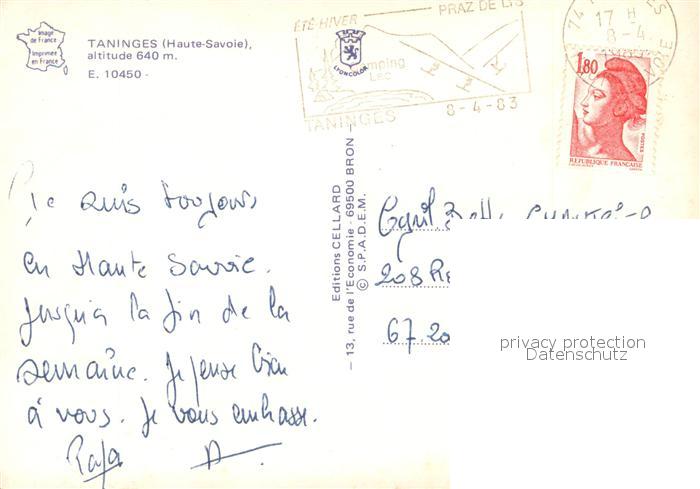 Image de France
Imprimée en France
TANINGES (Haute-Savoie),
altitude 640 m.
E. 10450 -
ÉTÉ-HIVER
PRAZ DE LYS
LYONCOLOR
Camping
Lac
TANINGES
8-4-83
74
17 H
8-4.
1,80
POSTES
REPUBLIQUE FRANÇAISE
Je suis toujours
en Haute Savoie.
Jusqu'à la fin de la
semaine. Je pense bien
à vous. Je vous embrasse.
Editions CELLARD
- 13, rue de l'Economie - 69500 BRON
© S.P.A.D.E.M.
208 R
67.20
privacy protection
Datenschutz